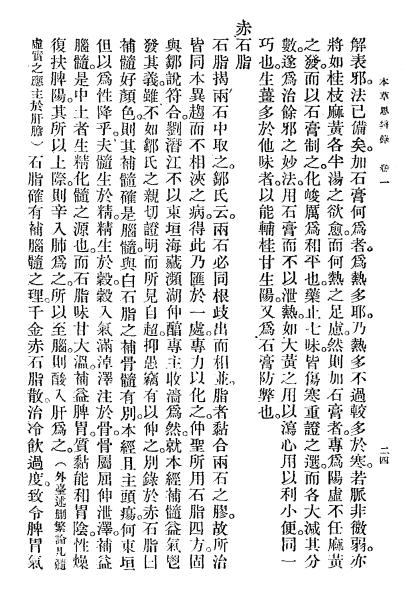 本草思辨錄 卷一
二四
解表邪。法已備矣。加石膏何爲者。爲熱多耶。乃熱多不過較多於寒。若脈非微弱。亦
將如桂枝麻黃各半湯之欲愈。而何熱之足慮。然則加石膏者。專爲陽虛不任麻黃
之發。而以石膏制之。化峻厲爲和平也。藥止七味。皆傷寒重證之選。而各大減其分
數。遂爲治餘邪之妙法。用石膏而不以泄熱。如大黃之用以瀉心。用以利小便。同一
巧也。生薑多於他味者。以能輔桂甘生陽。又爲石膏防弊也。
赤石脂
石脂揭兩石中取之。鄒氏云。兩石必同根歧出而相並。脂者黏合兩石之膠。故所治
皆同本異趨而不相浹之病。得此乃匯於一處。專力以化之。仲聖所用石脂四方。固
與鄒說符合。劉潛江不以東垣海藏瀕湖仲醕專主收濇爲然。就本經補髓益氣。鬯
發其義。雖不如鄒氏之親切證明。而所見自超。抑愚竊有以伸之。別錄於赤石脂曰
補髓好顏色。則其補髓確是腦髓。與白石脂之補骨髓有別。本經且主頭瘍。何東垣
但以爲性降乎。夫髓生於精。精生於穀。穀入氣滿淖澤注於骨。骨屬屈伸泄澤。補益
腦髓。是中土者。生精化髓之源也。而石脂味甘大溫。補益脾胃。質黏能和胃陰。性燥
復扶脾陽。其所以上際則辛入肺爲之。所以至腦則酸入肝爲之。（外臺述刪繁論凡髓
虛實之應主於肝膽）石脂確有補腦髓之理。千金赤石脂散。治冷飲過度。致令脾胃氣